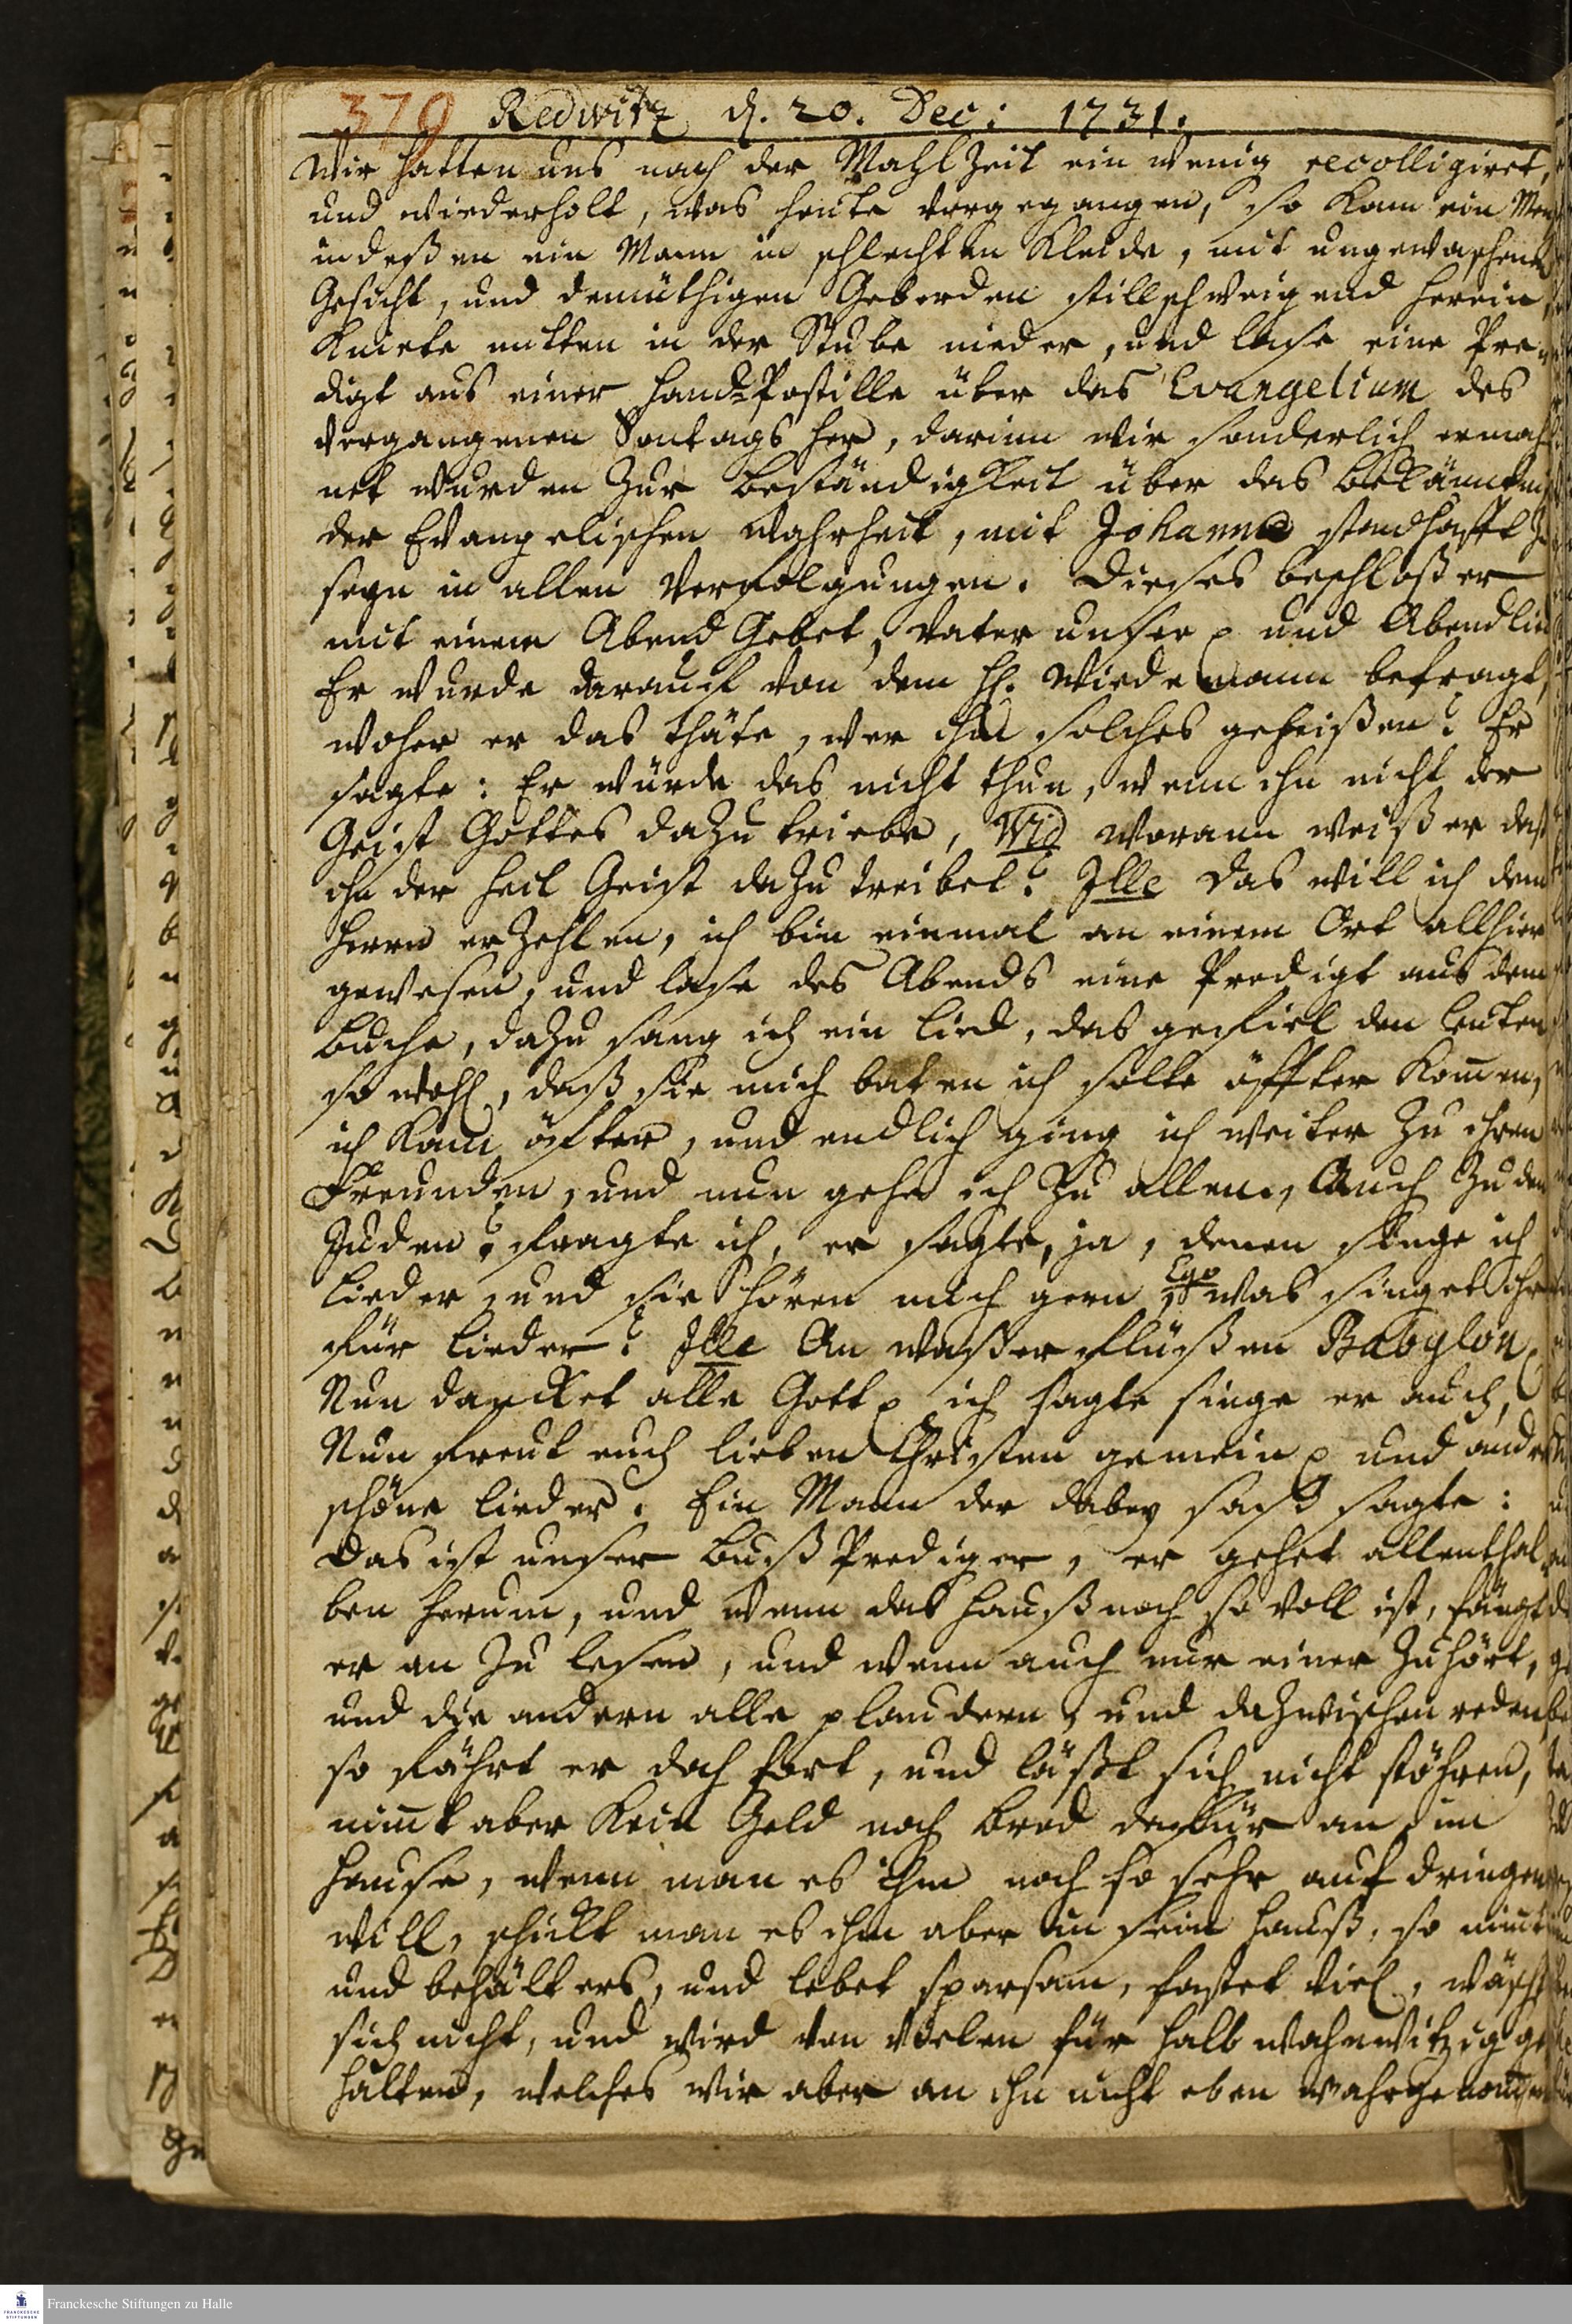 379 Redwitz d. 20. Dec: 1731.
Wir hatten uns nach der Mahlzeit ein wenig recolligiret,
und wiederholt, was heute vorgegangen, so kam ein
indeßen ein Mann in schlechten Kleide, mit ungewaschenen
Gesicht, und demüthigen Geberden stillschweigend herein,
Kniete mitten in der Stube nieder, und lase eine Pre¬
digt aus einer Hand-Postille über das Evangelium des
vergangenen Sontags her, darinn wir sonderlich ermah¬
net wurden zur Beständigkeit über das Bekänntniß
der Evangelischen Wahrheit, mit Johanne standhafft zu
seyn in allen Verfolgungen. Dieses beschloß er
mit einem Abend Gebet, Vater unser p und Abendlied
Er wurde darauf von dem H. Wiedemann befragt,
woher er das thäte, wer ihm solches geheißen? Er
sagte: Er würde das nicht thun, wenn ihn nicht der
Geist Gottes dazu triebe, Wid worann weiß er daß
ihn der Heil Geist dazu treibet? Ille Das will ich dem
Herrn erzehlen, ich bin einmal an einem Ort allhier
gewesen, und lase des Abends eine Predigt aus dem
Buche, dazu sang ich ein Lied, das gefiel den Leuten
so wohl, daß sie mich baten ich solte öffter kom̄en,
ich kam öfter, und endlich ging ich weiter zu ihren
Freunden, und nun gehe ich zu allen, Auch zu den
Juden? fragte ich, er sagte, ja, denen singe ich
Lieder, und sie hören mich gern, Ego was singet ihr
für Lieder? Ille An Waßerflüßen Babylon p
Nun dancket alle Gott p ich sagte singe er auch,
Nun freut euch lieben Christen gemein p und andre
schöne Lieder. Ein Mann der dabey saß sagte:
Das ist unser Buß Prediger, er gehet allenthal¬
ben herum, und wenn das Hauß noch so voll ist, fängt
er an zu lesen, und wenn auch nur einer zuhört,
und die andern alle plaudern, und dazwischen reden
so fährt er doch fort, und läßt sich nicht stöhren,
nim̄t aber kein Geld noch Brod dafür an im
Hause, wenn man es ihm noch so sehr aufdringen
will, schickt man es ihm aber in sein Hauß, so nim̄t
und behält ers, und lebet sparsam, fastet viel, wäscht
sich nicht, und wird von vielen für halb wahnwitzig ge
halten, welches wir aber an ihn nicht eben wahrgenom̄en
Franckesche Stiftungen zu Halle